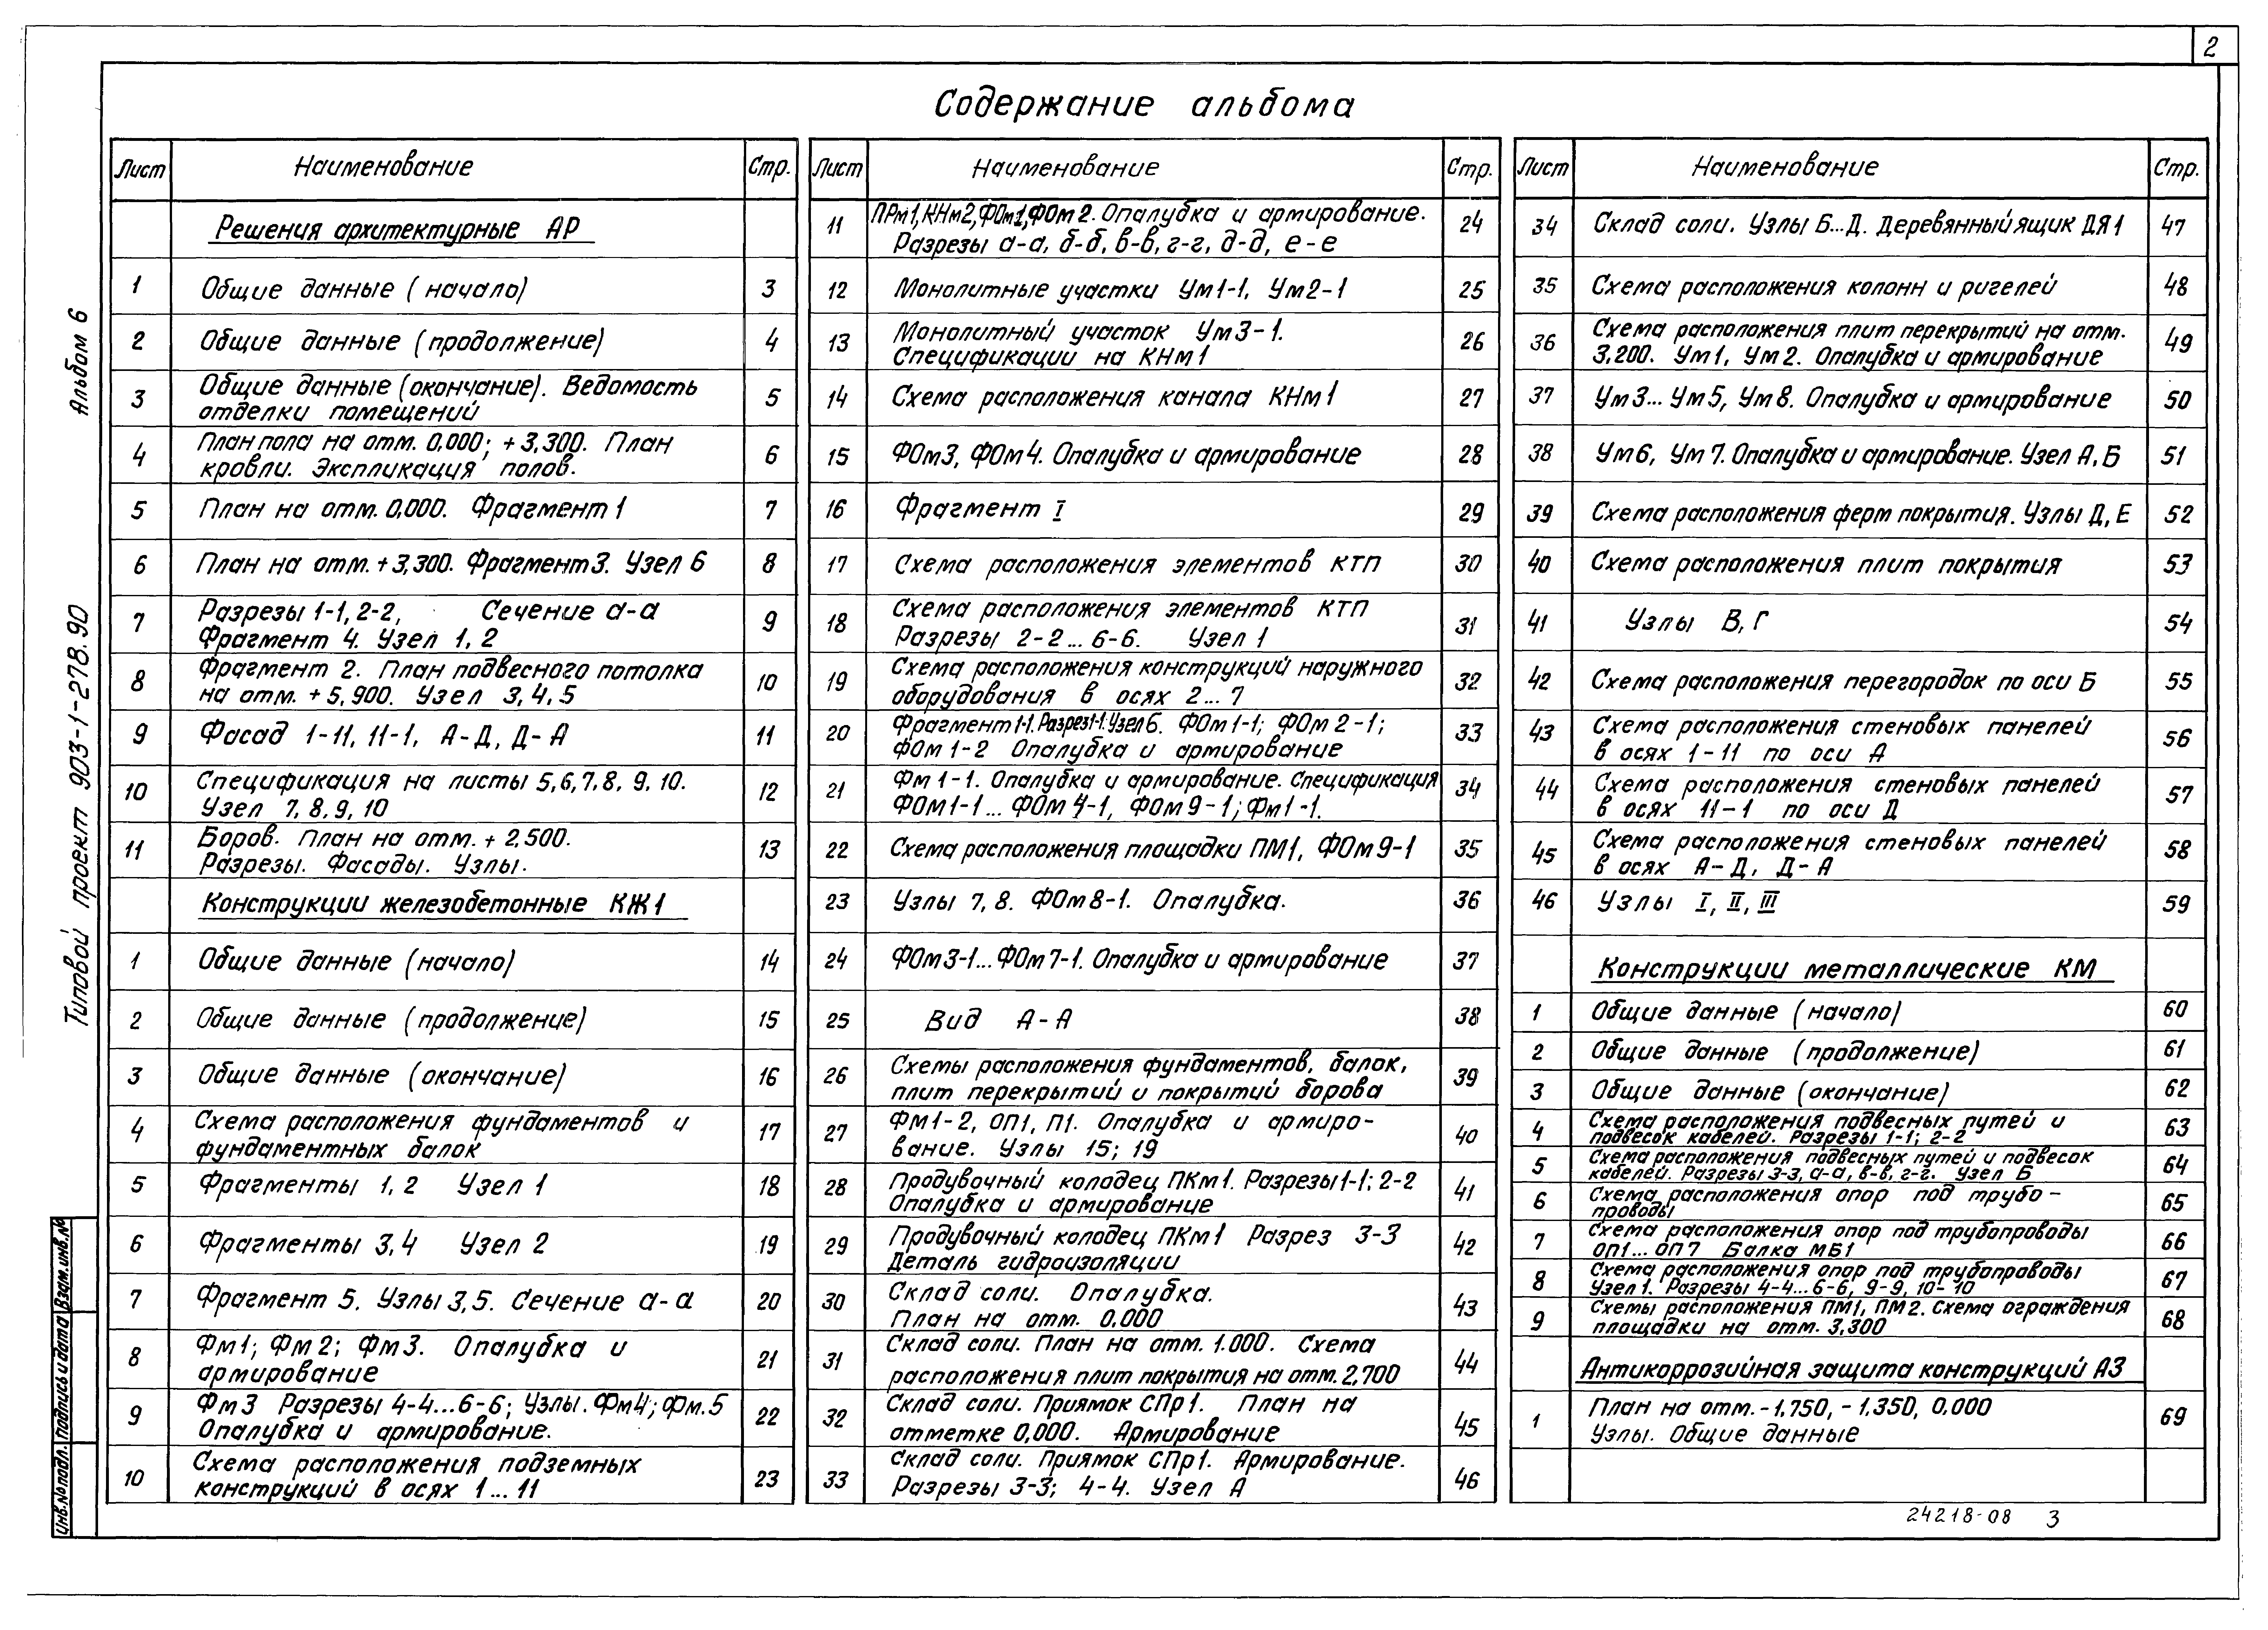 2
Содержание альбома
Альбом 6
Типовой проект 903-1-278.90
Взам.инв.№
Подпись и дата
Инв.№ подл.
Лист Наименование Стр.
Решения архитектурные АР
1 Общие данные (начало) 3
2 Общие данные (продолжение) 4
3 Общие данные (окончание). Ведомость 5
отделки помещений
4 План пола на отм. 0,000; +3,300. План 6
кровли. Экспликация полов.
5 План на отм. 0,000. Фрагмент 1 7
6 План на отм. +3,300. Фрагмент 3. Узел 6 8
7 Разрезы 1-1, 2-2, Сечение а-а 9
Фрагмент 4. Узел 1, 2
8 Фрагмент 2. План подвесного потолка 10
на отм. +5,900. Узел 3,4,5
9 Фасад 1-11, 11-1, А-Д, Д-А 11
10 Спецификация на листы 5,6,7,8, 9, 10. 12
Узел 7,8,9,10
11 Боров. План на отм. +2,500. 13
Разрезы. Фасады. Узлы.
Конструкции железобетонные КЖ1
1 Общие данные (начало) 14
2 Общие данные (продолжение) 15
3 Общие данные (окончание) 16
4 Схема расположения фундаментов и 17
фундаментных балок
5 Фрагменты 1,2 Узел 1 18
6 Фрагменты 3,4 Узел 2 19
7 Фрагмент 5. Узлы 3,5. Сечение а-а 20
8 Фм1; Фм2; Фм3. Опалубка и 21
армирование
9 Фм3 Разрезы 4-4...6-6; Узлы. Фм4; Фм.5 22
Опалубка и армирование.
10 Схема расположения подземных 23
конструкций в осях 1...11
Лист Наименование Стр.
11 ПРм1, КНм2, ФОм1, ФОм2. Опалубка и армирование. 24
Разрезы а-а, б-б, в-в, г-г, д-д, е-е
12 Монолитные участки Ум1-1, Ум2-1 25
13 Монолитный участок Ум3-1. 26
Спецификации на КНм1
14 Схема расположения канала КНм1 27
15 ФОм3, ФОм4. Опалубка и армирование 28
16 Фрагмент I 29
17 Схема расположения элементов КТП 30
18 Схема расположения элементов КТП 31
Разрезы 2-2...6-6. Узел 1
19 Схема расположения конструкций наружного 32
оборудования в осях 2...7
20 Фрагмент 1-1. Разрез 1-1. Узел 6. ФОм1-1; ФОм2-1; 33
ФОм1-2 Опалубка и армирование
21 Фм1-1. Опалубка и армирование. Спецификация 34
ФОм1-1...ФОм4-1, ФОм9-1; Фм1-1.
22 Схема расположения площадки ПМ1, ФОм9-1 35
23 Узлы 7, 8. ФОм8-1. Опалубка. 36
24 ФОм3-1...ФОм7-1. Опалубка и армирование 37
25 Вид А-А 38
26 Схемы расположения фундаментов, балок, 39
плит перекрытий и покрытий борова
27 Фм1-2, ОП1, П1. Опалубка и армиро- 40
вание. Узлы 15; 19
28 Продувочный колодец ПКм1. Разрезы 1-1; 2-2 41
Опалубка и армирование
29 Продувочный колодец ПКм1 Разрез 3-3 42
Деталь гидроизоляции
30 Склад соли. Опалубка. 43
План на отм. 0,000
31 Склад соли. План на отм. 1.000. Схема 44
расположения плит покрытия на отм. 2,700
32 Склад соли. Приямок СПр1. План на 45
отметке 0,000. Армирование
33 Склад соли. Приямок СПр1. Армирование. 46
Разрезы 3-3; 4-4. Узел А
Лист Наименование Стр.
34 Склад соли. Узлы Б...Д. Деревянный ящик ДЯ1 47
35 Схема расположения колонн и ригелей 48
36 Схема расположения плит перекрытий на отм. 49
3,200. Ум1, Ум2. Опалубка и армирование
37 Ум3...Ум5, Ум8. Опалубка и армирование 50
38 Ум6, Ум7. Опалубка и армирование. Узел А,Б 51
39 Схема расположения ферм покрытия. Узлы Д, Е 52
40 Схема расположения плит покрытия 53
41 Узлы В, Г 54
42 Схема расположения перегородок по оси Б 55
43 Схема расположения стеновых панелей 56
в осях 1-11 по оси А
44 Схема расположения стеновых панелей 57
в осях 11-1 по оси Д
45 Схема расположения стеновых панелей 58
в осях А-Д, Д-А
46 Узлы I, II, III 59
Конструкции металлические КМ
1 Общие данные (начало) 60
2 Общие данные (продолжение) 61
3 Общие данные (окончание) 62
4 Схема расположения подвесных путей и 63
подвесок кабелей. Разрезы 1-1; 2-2
5 Схема расположения подвесных путей и подвесок 64
кабелей. Разрезы 3-3, а-а, в-в, г-г. Узел Б
6 Схема расположения опор под трубо- 65
проводы
7 Схема расположения опор под трубопроводы 66
ОП1...ОП7 Балка МБ1
8 Схема расположения опор под трубопроводы 67
Узел 1. Разрезы 4-4...6-6, 9-9, 10-10
9 Схемы расположения ПМ1, ПМ2. Схема ограждения 68
площадки на отм. 3,300
Антикоррозийная защита конструкций АЗ
1 План на отм. -1,750, -1,350, 0,000 69
Узлы. Общие данные
24218-08 3